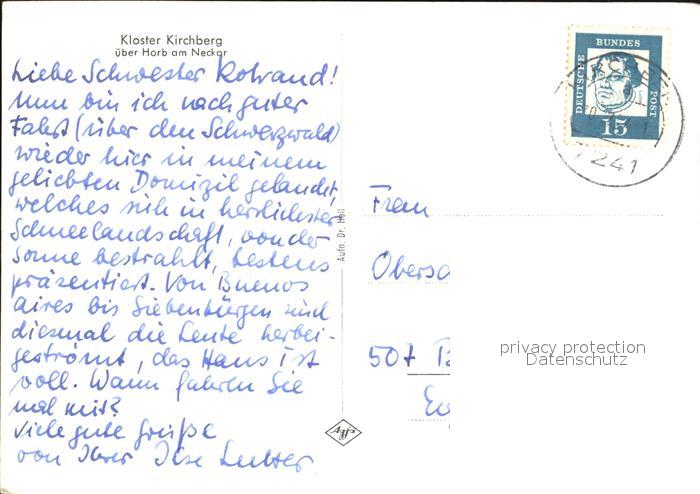 Kloster Kirchberg
über Horb am Neckar
Liebe Schwester Rotraud!
Nun bin ich nach guter
Fahrt (über den Schwarzwald)
wieder hier in meinem
geliebten Domizil gelandet,
welches sich in herrlichster
Schneelandschaft, von der
Sonne bestrahlt, bestens
präsentiert. Von Buenos
Aires bis Siebenbürgen sind
diesmal die Leute herbei-
geströmt, das Haus ist
voll. Wann fahren Sie
mal mit?
Viele gute Grüße
von Ihrer Ilse
Aufn. Dr. Hell
Agfa
DEUTSCHE
BUNDES
POST
15
7241
Frau
507
privacy protection
Datenschutz